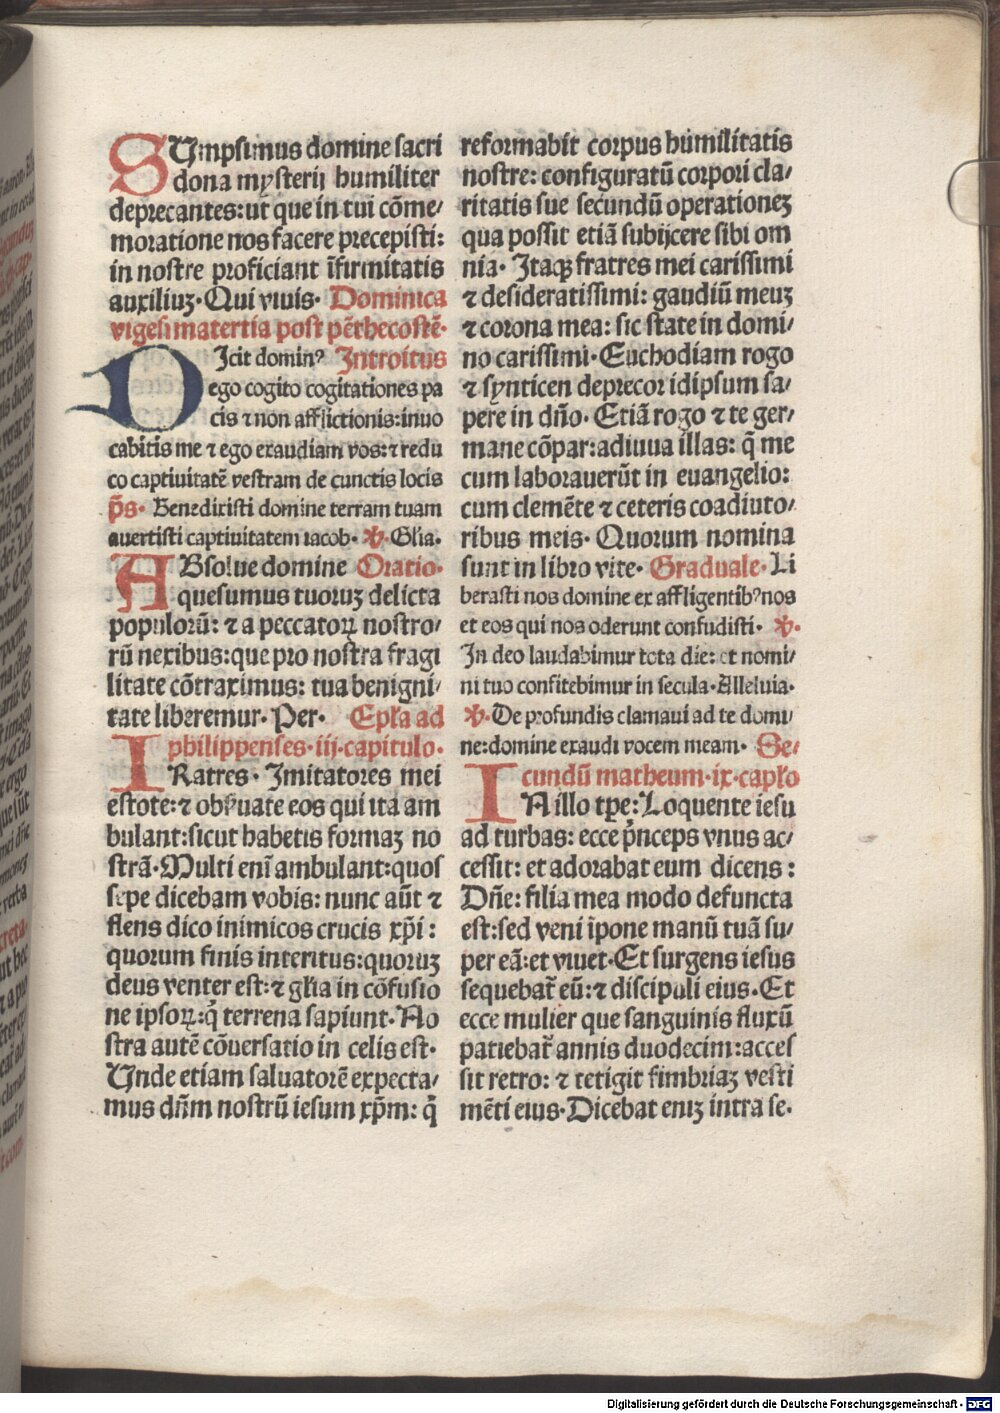 SUmpsimus domine sacri
dona mysterij humiliter
deprecantes: ut que in tui cōme/
moratione nos facere precepisti:
in nostre proficiant īfirmitatis
auxiliuʒ. Qui viuis. Dominica
vigesimatertia post pēthecostē.
DIcit dominꝰ Introitus
ego cogito cogitationes pa
cis ⁊ non afflictionis: inuo
cabitis me ⁊ ego exaudiam vos: ⁊ redu
co captiuitatē vestram de cunctis locis
p̄s. Benedixisti domine terram tuam
auertisti captiuitatem iacob. ℣. Glia.
ABsolue domine Oratio.
quesumus tuoruʒ delicta
populorū: ⁊ a peccatoꝝ nostro/
rū nexibus: que pro nostra fragi
litate cōtraximus: tua benigni/
tate liberemur. Per. Epl̄a ad
philippenses. iij. capitulo.
IRatres. Imitatores mei
estote: ⁊ obseruate eos qui ita am
bulant: sicut habetis formaʒ no
strā. Multi eni ̄ambulant: quos
sepe dicebam vobis: nunc aūt ⁊
flens dico inimicos crucis xp̄i:
quorum finis interitus: quoruʒ
deus venter est: ⁊ gl̄ia in cōfusio
ne ipsoꝝ: q̄ terrena sapiunt. No
stra autē cōuersatio in celis est.
Unde etiam saluatorē expecta/
mus dn̄m nostrū iesum xp̄m: q̄
reformabit corpus humilitatis
nostre: configuratū corpori cla/
ritatis sue secundū operationeʒ
qua possit etiā subijcere sibi om
nia. Itaqꝫ fratres mei carissimi
⁊ desideratissimi: gaudiū meuʒ
⁊ corona mea: sic state in domi/
no carissimi. Euchodiam rogo
⁊ synticen deprecor idipsum sa/
pere in dn̄o. Etiā rogo ⁊ te ger/
mane cōpar: adiuua illas: q̄ me
cum laborauerūt in euangelio:
cum clemēte ⁊ ceteris coadiuto/
ribus meis. Quorum nomina
sunt in libro vite. Graduale. Li
berasti nos domine ex affligentibꝰ nos
et eos qui nos oderunt confudisti. ℣.
In deo laudabimur tota die: et nomi/
ni tuo confitebimur in secula. Alleluia.
℣. De profundis clamaui ad te domi/
ne: domine exaudi vocem meam. Se/
cundū matheum. ix. capl̄o
IN illo tp̄e: Loquente iesu
ad turbas: ecce p̄nceps vnus ac/
cessit: et adorabat eum dicens:
Dn̄e: filia mea modo defuncta
est: sed veni īpone manū tuā su/
per eā: et viuet. Et surgens iesus
sequebat̄ eū: ⁊ discipuli eius. Et
ecce mulier que sanguinis fluxū
patiebat̄ annis duodecim: acces
sit retro: ⁊ tetigit fimbriaʒ vesti
mēti eius. Dicebat eniʒ intra se.
Digitalisierung gefördert durch die Deutsche Forschungsgemeinschaft - DFG